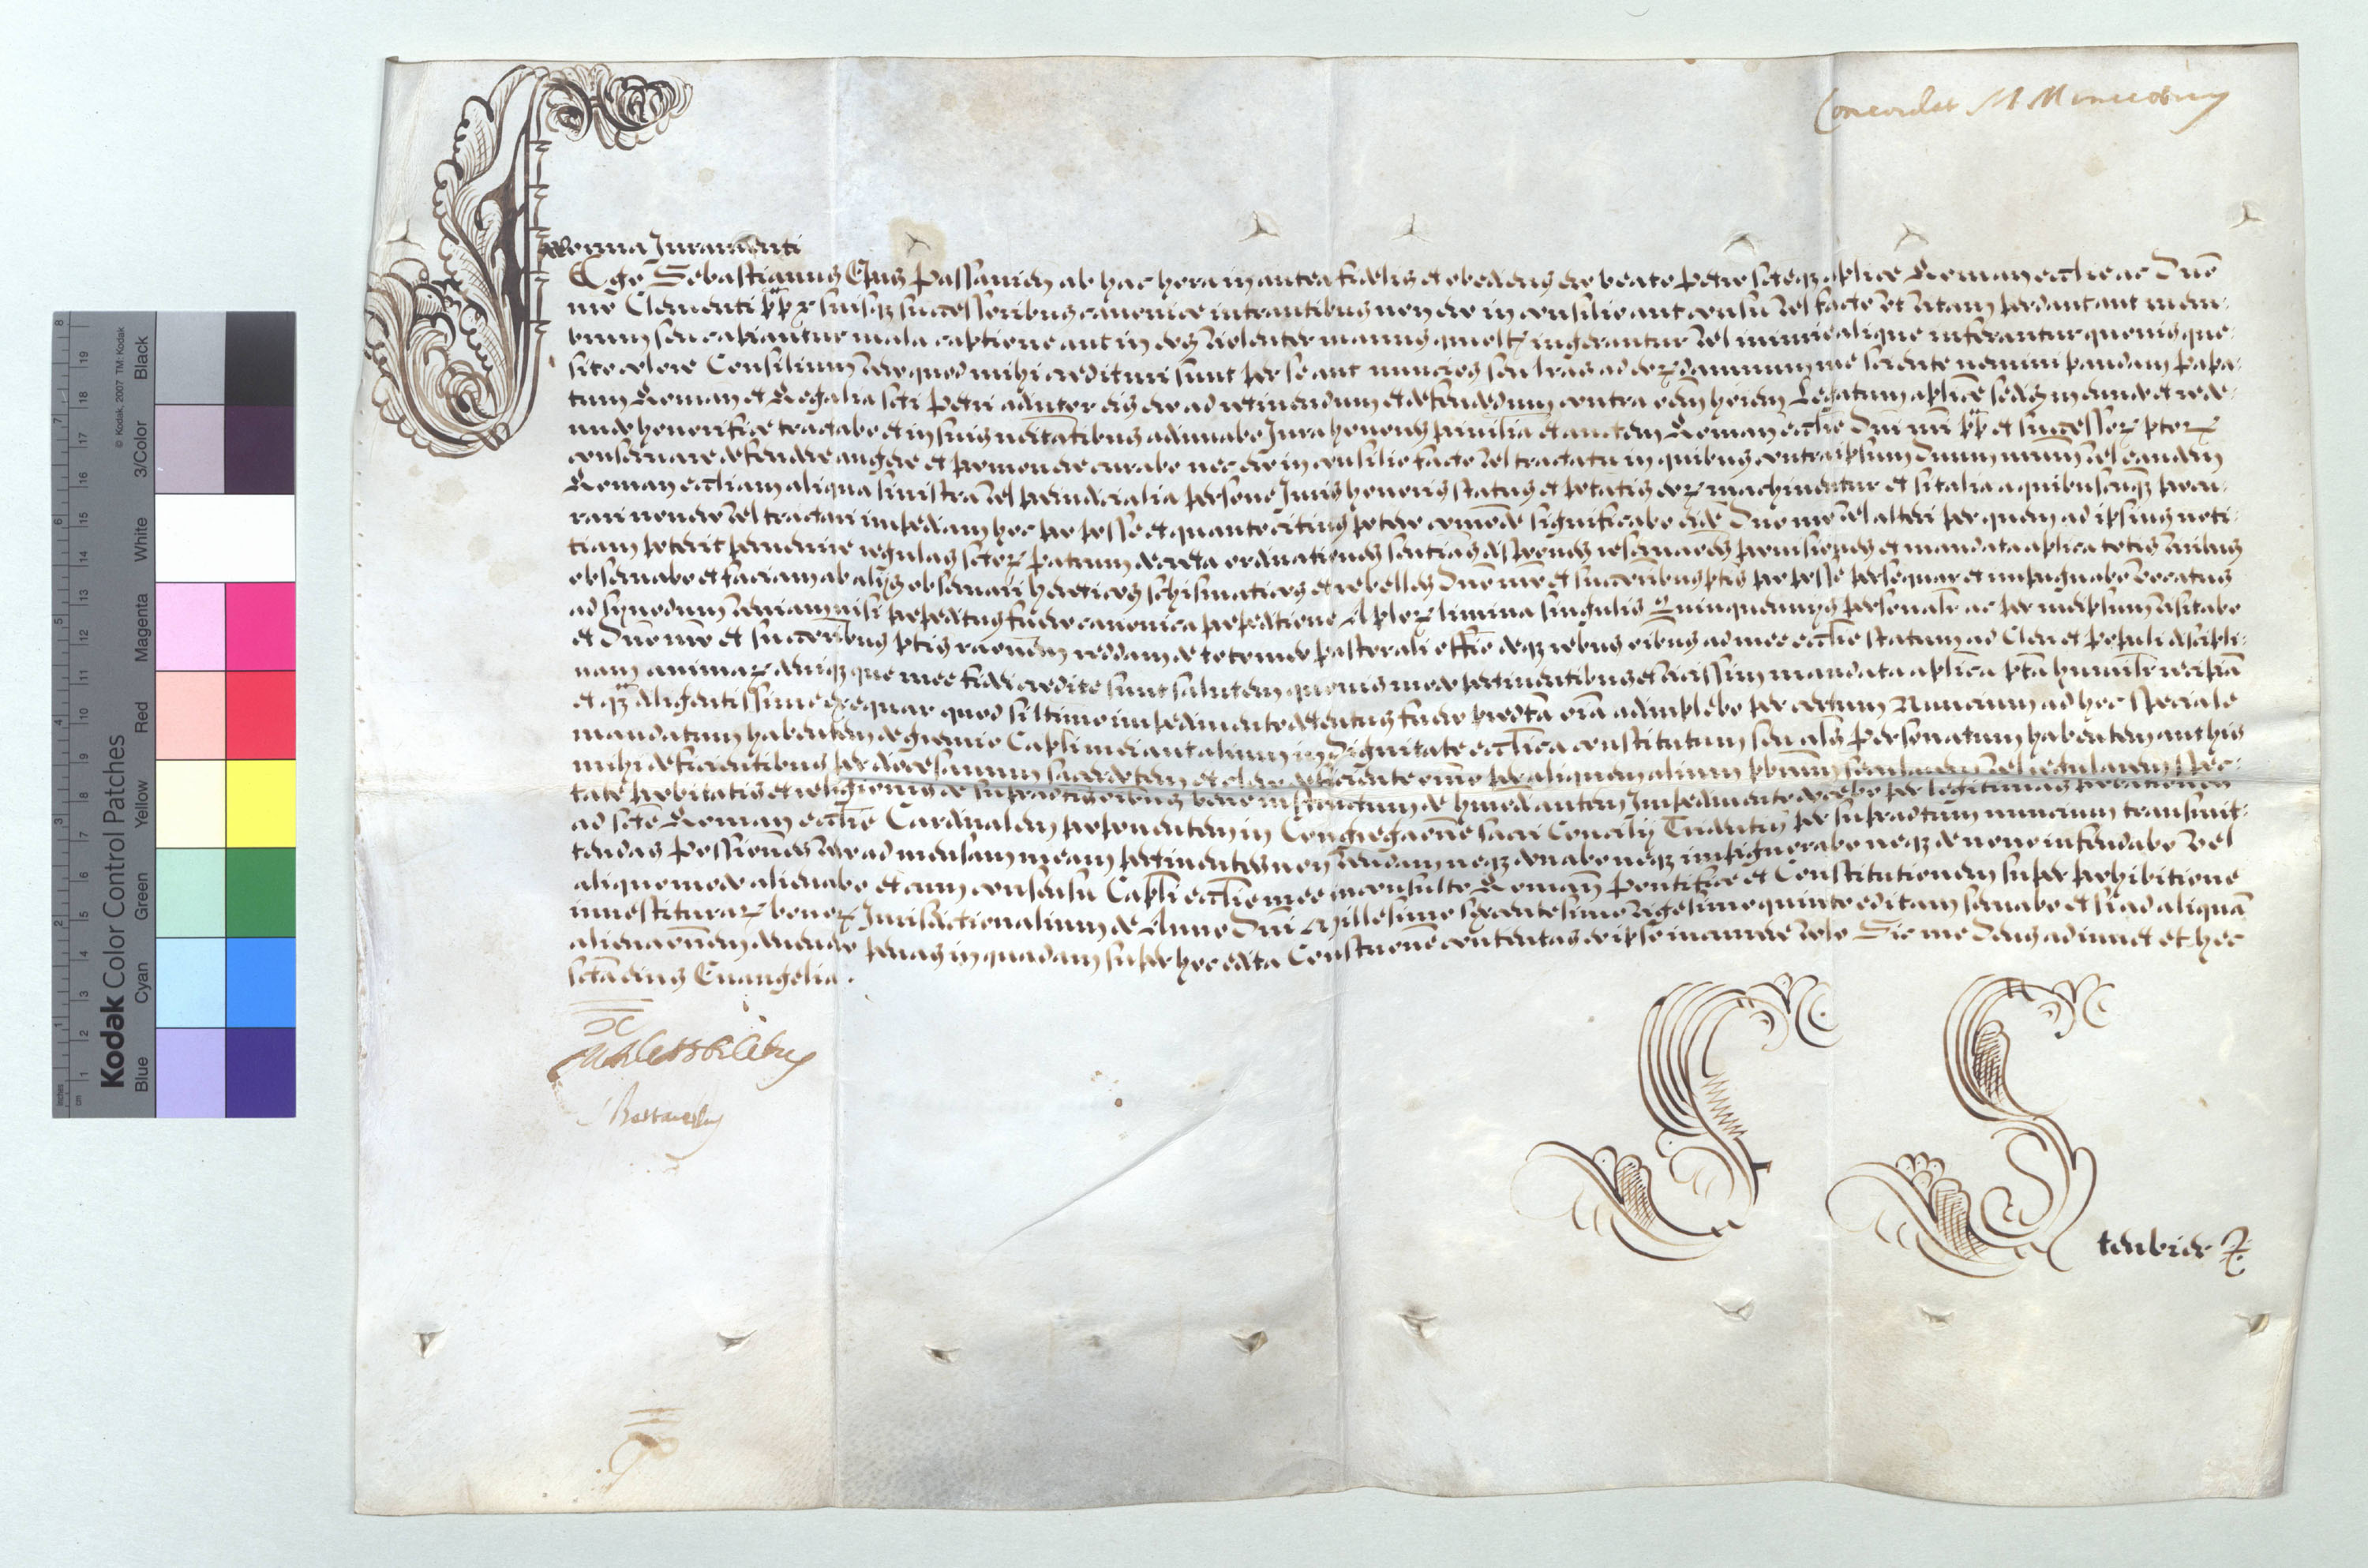 Concordat
Forma Juramenti
Ego Sebastianus Epus Passavien ab hac hora in antea fidelis et obediens ero beato Petro scteq3 aplice Roman ecclie ac Dno
mro Clementi pp x suisq3 successoribus canonice intrantibus non ero in consilio aut consensu vel facto ut vitam perdant aut mem-
brum seu capiantur mala captione aut in eos violenter manus quomolt ingerantur vel iniurie alique inferantur quovis que-
sito colore Consilium vero quod mihi credituri sunt per se aut nuncios seu lras ad eor damnum me sciente nemini pandam Papa-
tum Roman et Regalia scti Petri adiutor eis ero ad retinendum et defendendum contra oem hoiem Legatum aplice sedis in eundo et rede-
undo honorifice tractabo et in suis necitatibus adiuvabo Jura honores privilia et auctem Roman ecclie Dni nri pp et successor ptor
conservare defendere augere et promovere curabo nec ero in consilio facto vel tractatu in quibus contra ipsum Dnum nrum vel eandem
Roman eccliam aliqua sinistra vel preiudicialia persone Juris honoris status et ptatis eor machinentur et si talia a quibuscunq3 procu-
rari novero vel tractari impediam hoc pro posse et quanto citius potero comode significabo eidem Dno nro vel alteri per quem ad ipsius noti-
tiam poterit pervenire regulas sctor Patrum decreta ordinationes sentias dispones reservaones provisiones et mandata aplica totis viribus
observabo et faciam ab aliis observari hereticos schismaticos et rebelles Dno nro et succoribus ptis pro posse persequar et impugnabo vocatus
ad synodum veniam nisi prepeditus fuero canonica prepeditione Aplor limina singulis Quinquenniis personalr ac per meipsum visitabo
et Dno nro et succoribus ptis raonem reddam de toto meo pastorali officio deq3 rebus oibus ad mee ecclie statum ad Cleri et Populi discipli-
nam animar deniq3 que mee fidei credite sunt salutem quovis modo pertinentibus et vicissim mandata aplica pta humilr recipiam
et q3 diligentissime exequar quod si ltimo impedimento detentus fuero predta oia adimplebo per certum Nuncium ad hoc speciale
mandatum habentem de gremio Capli mei aut alium in Dignitate ecclica constitutum seu als Personatum habentem aut his
mihi deficientibus per diocesanum sacerdotem et clero deficiente omno per aliquem alium pbrum secularem vel regularem spec-
tate probitatis et religionis de supradictis oibus bene instructum de hmoi autem Impedimento docebo per legitimas probationes
ad scte Roman ecclie Cardinalem proponentem in Congregaone sacri Concilij Tridentin per supradictum nuncium transmit-
tendas Possiones vero ad mensam meam pertinentes non vendam neq3 donabo neq3 impignorabo neq3 de novo infeudabo vel
aliquo modo alienabo et cum consensu Capli ecclie mee inconsulto Roman Pontifice et Constitutionem super prohibitione
investiturar bonor Jurisdictionalium de Anno Dni Millesimo sexcentesimo vigesimo quinto editam servabo et si ad aliquam
alienaonem devenero penas in quadam super hoc edita Constuone contentas eo ipso incurrere volo Sic me Deus adiuvet et hec
scta dei Evangelia.